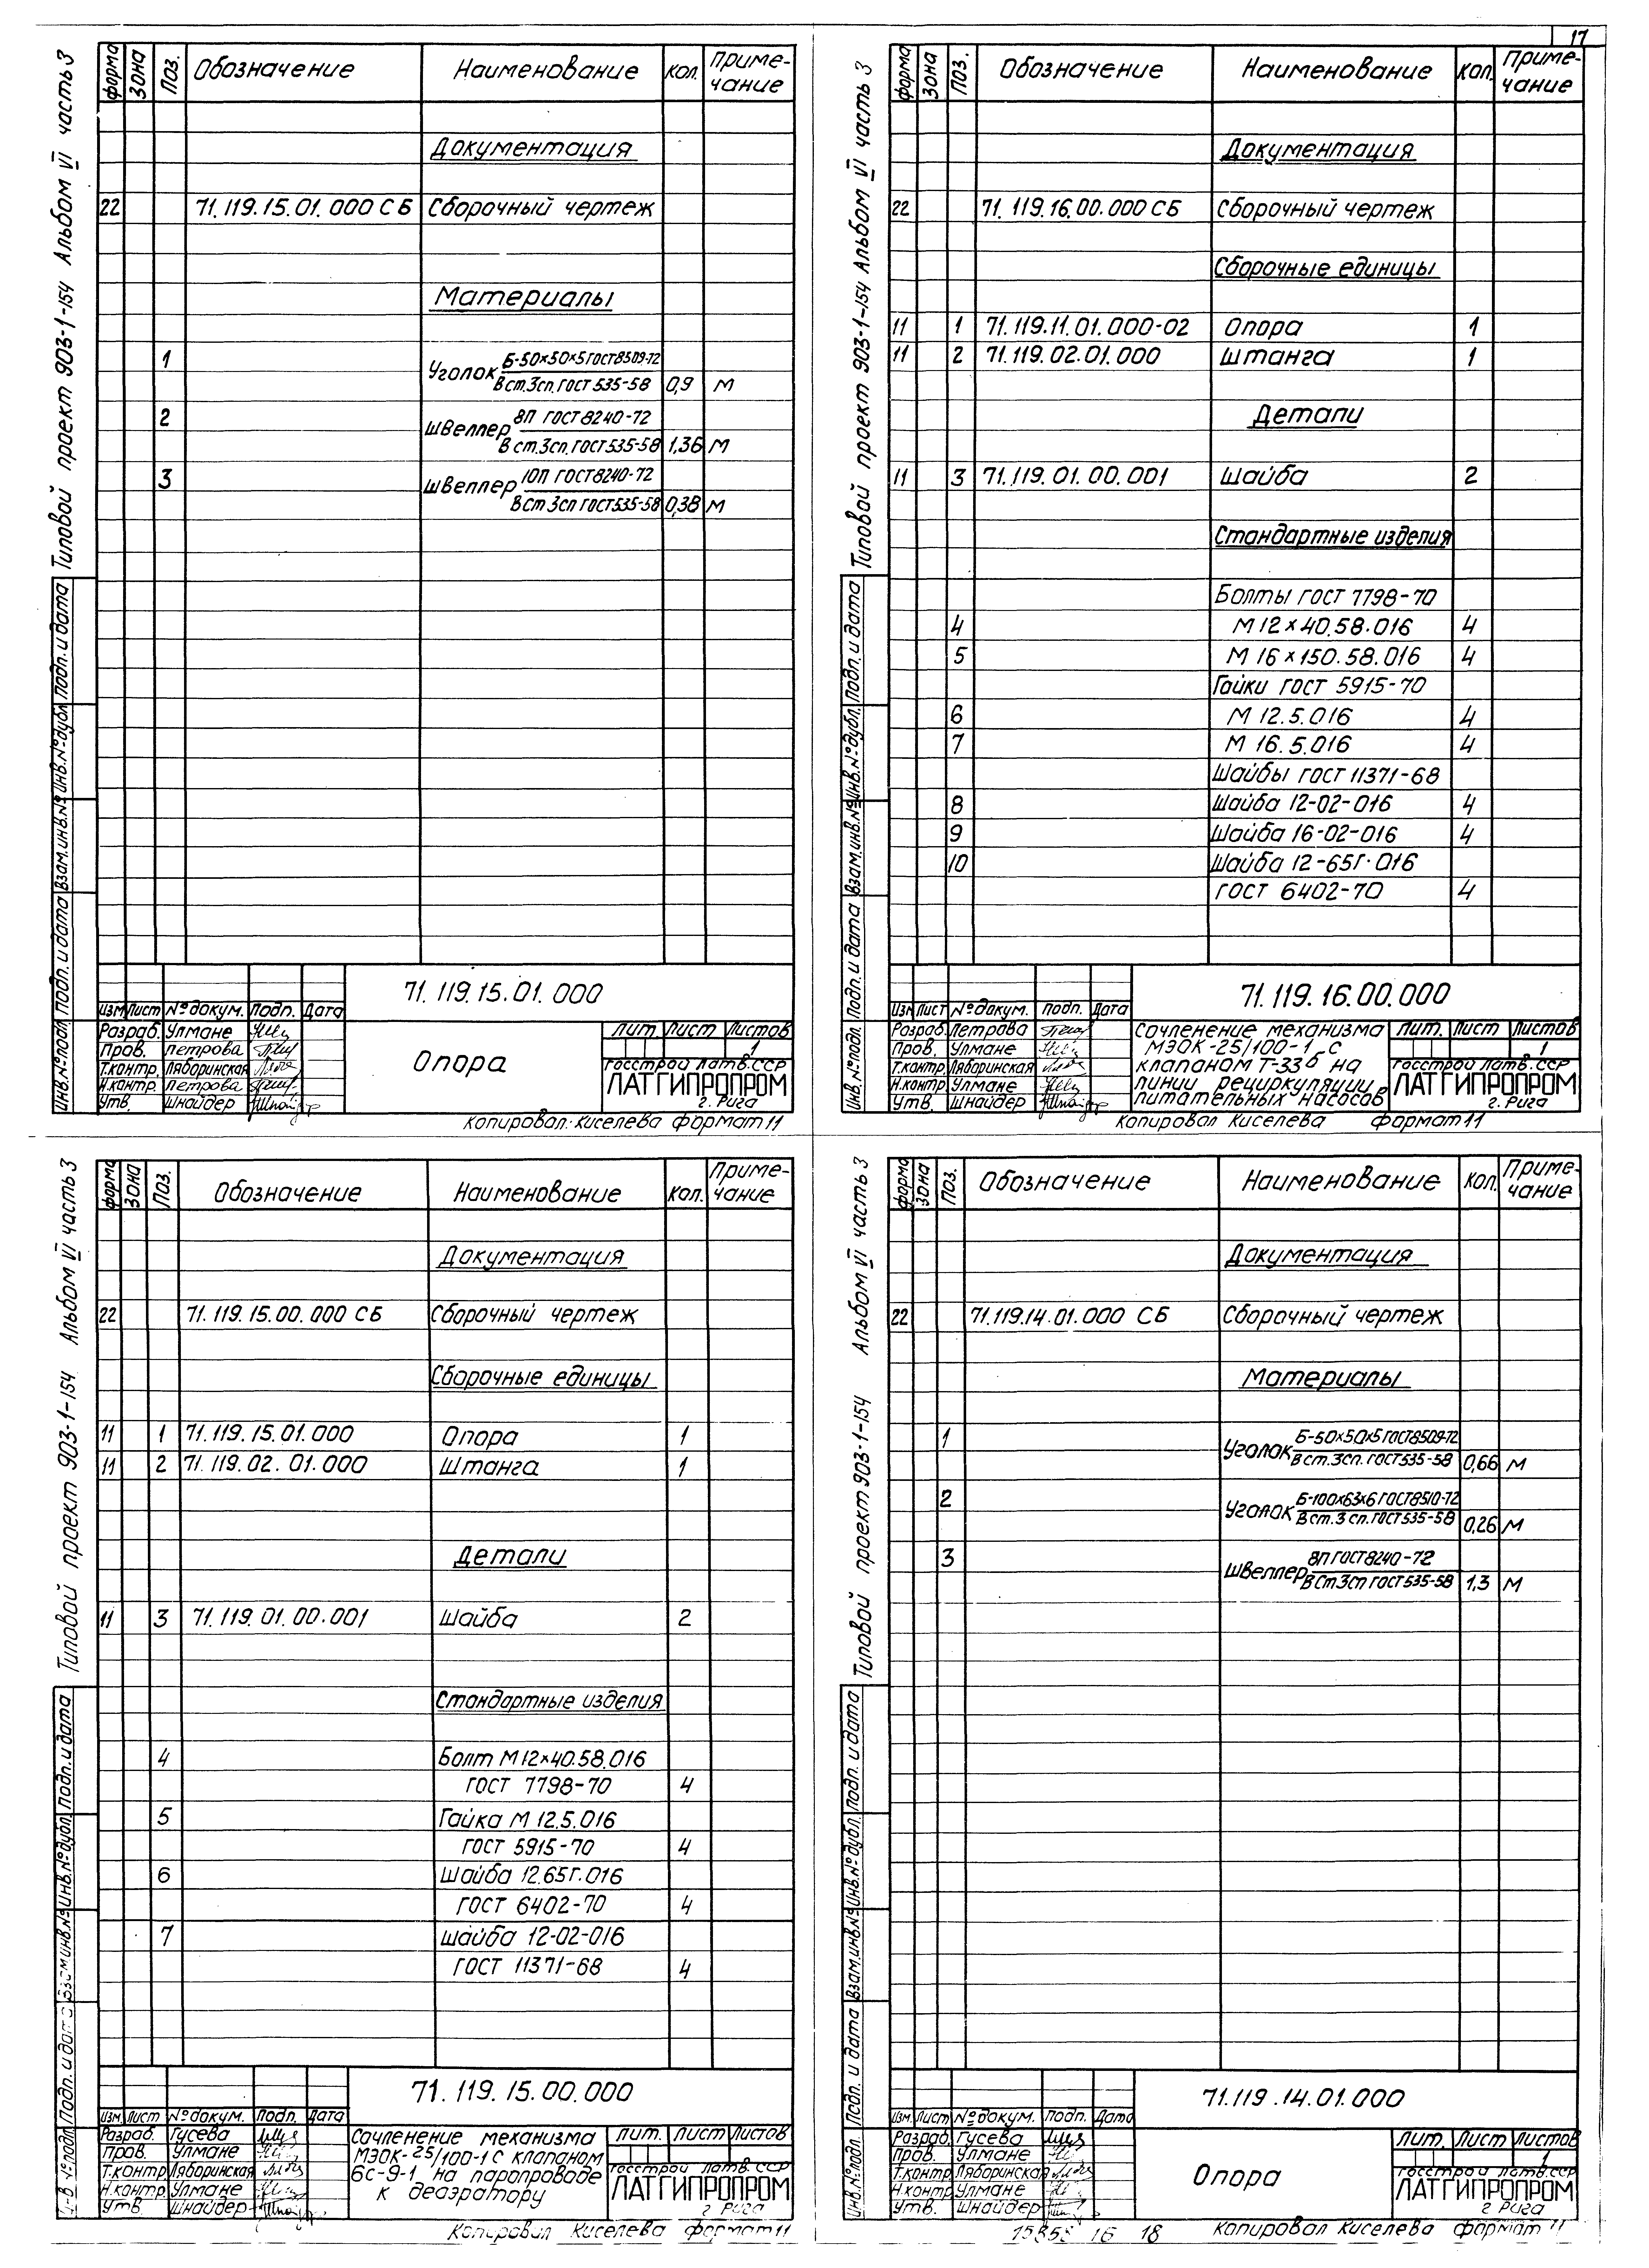 17
Типовой проект 903-1-154 Альбом VI часть 3
форма Зона Поз. Обозначение Наименование Кол. Приме-
чание
Документация
22 71.119.15.01.000 СБ Сборочный чертеж
Материалы
1 Уголок Б-50×50×5 ГОСТ 8509-72
В ст.3сп. ГОСТ 535-58 0,9 м
2 Швеллер 8П ГОСТ 8240-72
В ст.3сп. ГОСТ 535-58 1,36 м
3 Швеллер 10П ГОСТ 8240-72
В ст 3сп ГОСТ 535-58 0,38 м
Инв.№подл. Подп. и дата Взам.инв.№ Инв.№дубл. Подп. и дата
71.119.15.01.000
Изм Лист № докум. Подп. Дата
Разраб. Улмане
Пров. Петрова
Т.контр. Ляборинская
Н.контр. Петрова
Утв. Шнайдер
Опора
Лит. Лист Листов
1
Госстрой Латв.ССР
ЛАТГИПРОПРОМ
г. Рига
Копировал: Киселева формат 11
Типовой проект 903-1-154 Альбом VI часть 3
форма Зона Поз. Обозначение Наименование Кол. Приме-
чание
Документация
22 71.119.16.00.000 СБ Сборочный чертеж
Сборочные единицы
11 1 71.119.11.01.000-02 Опора 1
11 2 71.119.02.01.000 Штанга 1
Детали
11 3 71.119.01.00.001 Шайба 2
Стандартные изделия
Болты ГОСТ 7798-70
4 М 12×40.58.016 4
5 М 16×150.58.016 4
Гайки ГОСТ 5915-70
6 М 12.5.016 4
7 М 16.5.016 4
Шайбы ГОСТ 11371-68
8 Шайба 12-02-016 4
9 Шайба 16-02-016 4
10 Шайба 12-65Г.016
ГОСТ 6402-70 4
Инв.№подл. Подп. и дата Взам.инв.№ Инв.№дубл. Подп. и дата
71.119.16.00.000
Изм Лист № докум. Подп. Дата
Разраб. Петрова
Пров. Улмане
Т.контр. Ляборинская
Н.контр. Улмане
Утв. Шнайдер
Сочленение механизма
МЭОК-25/100-1 с
клапаном Т-33б на
линии рециркуляции
питательных насосов
Лит. Лист Листов
1
Госстрой Латв.ССР
ЛАТГИПРОПРОМ
г. Рига
Копировал Киселева формат 11
Типовой проект 903-1-154 Альбом VI часть 3
форма Зона Поз. Обозначение Наименование Кол. Приме-
чание
Документация
22 71.119.15.00.000 СБ Сборочный чертеж
Сборочные единицы
11 1 71.119.15.01.000 Опора 1
11 2 71.119.02.01.000 Штанга 1
Детали
11 3 71.119.01.00.001 Шайба 2
Стандартные изделия
4 Болт М12×40.58.016
ГОСТ 7798-70 4
5 Гайка М 12.5.016
ГОСТ 5915-70 4
6 Шайба 12.65Г.016
ГОСТ 6402-70 4
7 Шайба 12-02-016
ГОСТ 11371-68 4
№подл. Подп. и дата Взам.инв.№ Инв.№дубл. Подп. и дата
71.119.15.00.000
Изм. Лист № докум. Подп. Дата
Разраб. Гусева
Пров. Улмане
Т.контр Ляборинская
Н.контр. Улмане
Утв. Шнайдер
Сочленение механизма
МЭОК-25/100-1 с клапаном
6с-9-1 на паропроводе
к деаэратору
Лит. Лист Листов
Госстрой Латв.ССР
ЛАТГИПРОПРОМ
г Рига
Копировал Киселева формат 11
Типовой проект 903-1-154 Альбом VI часть 3
форма Зона Поз. Обозначение Наименование Кол. Приме-
чание
Документация
22 71.119.14.01.000 СБ Сборочный чертеж
Материалы
1 Уголок Б-50×50×5 ГОСТ 8509-72
В ст.3сп. ГОСТ 535-58 0,66 м
2 Уголок Б-100×63×6 ГОСТ 8510-72
В ст.3 сп. ГОСТ 535-58 0,26 м
3 Швеллер 8П ГОСТ 8240-72
В Ст 3сп ГОСТ 535-58 1,3 м
Инв.№подл. Подп. и дата Взам.инв.№ Инв.№дубл. Подп. и дата
71.119.14.01.000
Изм. Лист № докум. Подп. Дата
Разраб. Гусева
Пров. Улмане
Т.контр Ляборинская
Н.контр Улмане
Утв. Шнайдер
Опора
Лит. Лист Листов
1
Госстрой Латв.ССР
ЛАТГИПРОПРОМ
г Рига
16 18 Копировал Киселева формат 11